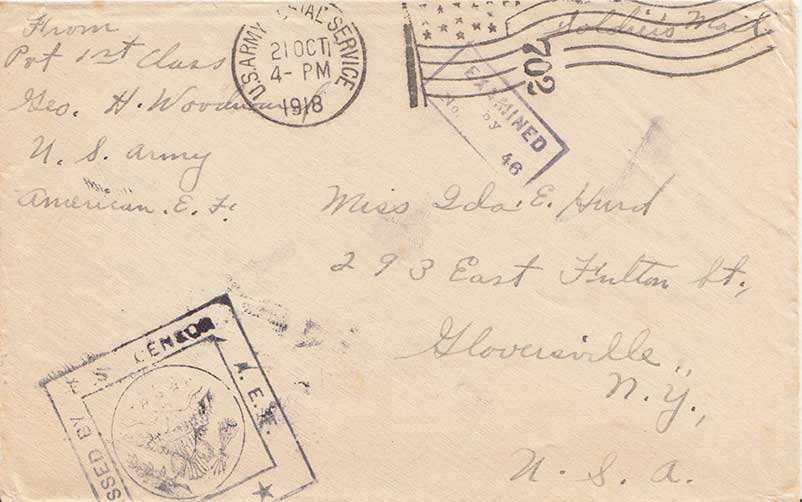 From
Pvt 1st Class
Geo. H. Woodward
U. S. Army
American. E. F.
U.S. ARMY POSTAL SERVICE
21 OCT
4- PM
1918
702
Soldier's Mail
EXAMINED
by
No. 46
Miss Ida. E. Hurd
293 East Fulton St.,
Gloversville,,
N. Y.,
U. S. A.
CENSOR
A. E. F.